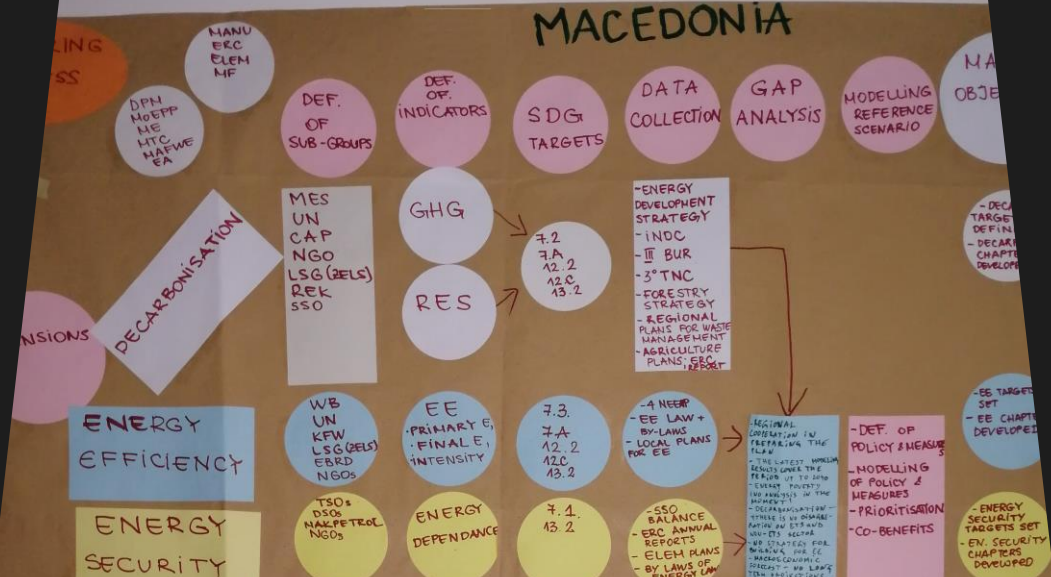 MACEDONIA
MANU
ERC
ELEM
MF
DPN
MOEPP
ME
MTC
MAFWE
EA
DEF.
OF
SUB-GROUPS
DEF.
OF.
INDICATORS
SDG
TARGETS
DATA
COLLECTION
GAP
ANALYSIS
MODELLING
REFERENCE
SCENARIO
MA
OBJE
DECARBONISATION
MES
UN
CAP
NGO
LSG(ZELS)
REK
SSO
GHG
RES
7.2
7.A
12.2
12C
13.2
-ENERGY
DEVELOPMENT
STRATEGY
-INDC
-III BUR
-3° TNC
-FORESTRY
STRATEGY
-REGIONAL
PLANS FOR WASTE
MANAGEMENT
-AGRICULTURE
PLANS; ERC
REPORT
-DECA
TARGE
DEFIN
-DECAR
CHAPTE
DEVELOPE
NSIONS
ENERGY
EFFICIENCY
WB
UN
KFW
LSG(ZELS)
EBRD
NGOs
EE
·PRIMARY E,
·FINAL E,
INTENSITY
7.3.
7A
12.2
12C
13.2
-4 NEEAP
-EE LAW+
BY-LAWS
-LOCAL PLANS
FOR EE
-REGIONAL
COOPERATION IN
PREPARING THE
PLAN
-THE LATEST MODELLING
RESULTS COVER THE
PERIOD UP TO
-ENERGY POVERTY
(NO ANALYSIS IN THE
MOMENT)
-DECARBONISATION-
THERE IS NO
ON ETS AND
NON-ETS SECTOR
-NO STRATEGY FOR
BUILDING FOR EE
-MACROECONOMIC
FORECAST - NO LONG
TERM PROJECTIONS
-DEF. OF
POLICY & MEASURES
-MODELLING
OF POLICY &
MEASURES
-PRIORITISATION
-CO-BENEFITS
-EE TARGET
SET
-EE CHAPTE
DEVELOPED
ENERGY
SECURITY
TSOs
DSOs
MAKPETROL
NGOs
ENERGY
DEPENDANCE
7.1.
13.2
-SSO
BALANCE
-ERC ANNUAL
REPORTS
-ELEM PLANS
-BY LAWS OF
ENERGY LAW
-ENERGY
SECURITY
TARGETS SET
-EN. SECURITY
CHAPTERS
DEVELOPED